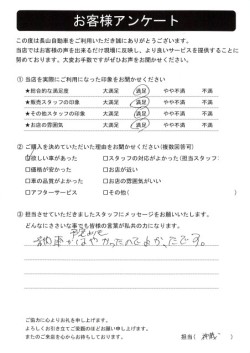 お客様アンケート
この度は長山自動車をご利用いただき誠にありがとうございます。
当店ではお客様の声を出来るだけ現場に反映し、より良いサービスを提供することに
努めております。大変お手数ですがぜひお声をお聞かせください。
① 当店を実際にご利用になった印象をお聞かせください
★総合的な満足度 大満足 満足 やや不満 不満
★販売スタッフの印象 大満足 満足 やや不満 不満
★その他スタッフの印象 大満足 満足 やや不満 不満
★お店の雰囲気 大満足 満足 やや不満 不満
② ご購入を決めていただいた理由をお聞かせください(複数回答可)
□欲しい車があった □スタッフの対応がよかった(担当スタッフ:
□価格が安かった □お店が近い
□車の品質がよかった □お店の雰囲気がいい
□アフターサービス □その他( )
③ 担当させていただきましたスタッフにメッセージをお願いいたします。
どんなにささいな事でも皆様の言葉が私共の力になります。
予定より
納車がはやかったのでよかったです。
ご協力に心よりお礼を申し上げます。
よろしくお引き立てご愛顧のほどお願い申し上げます。
またのご来店を心からお待ちしております。
担当( )